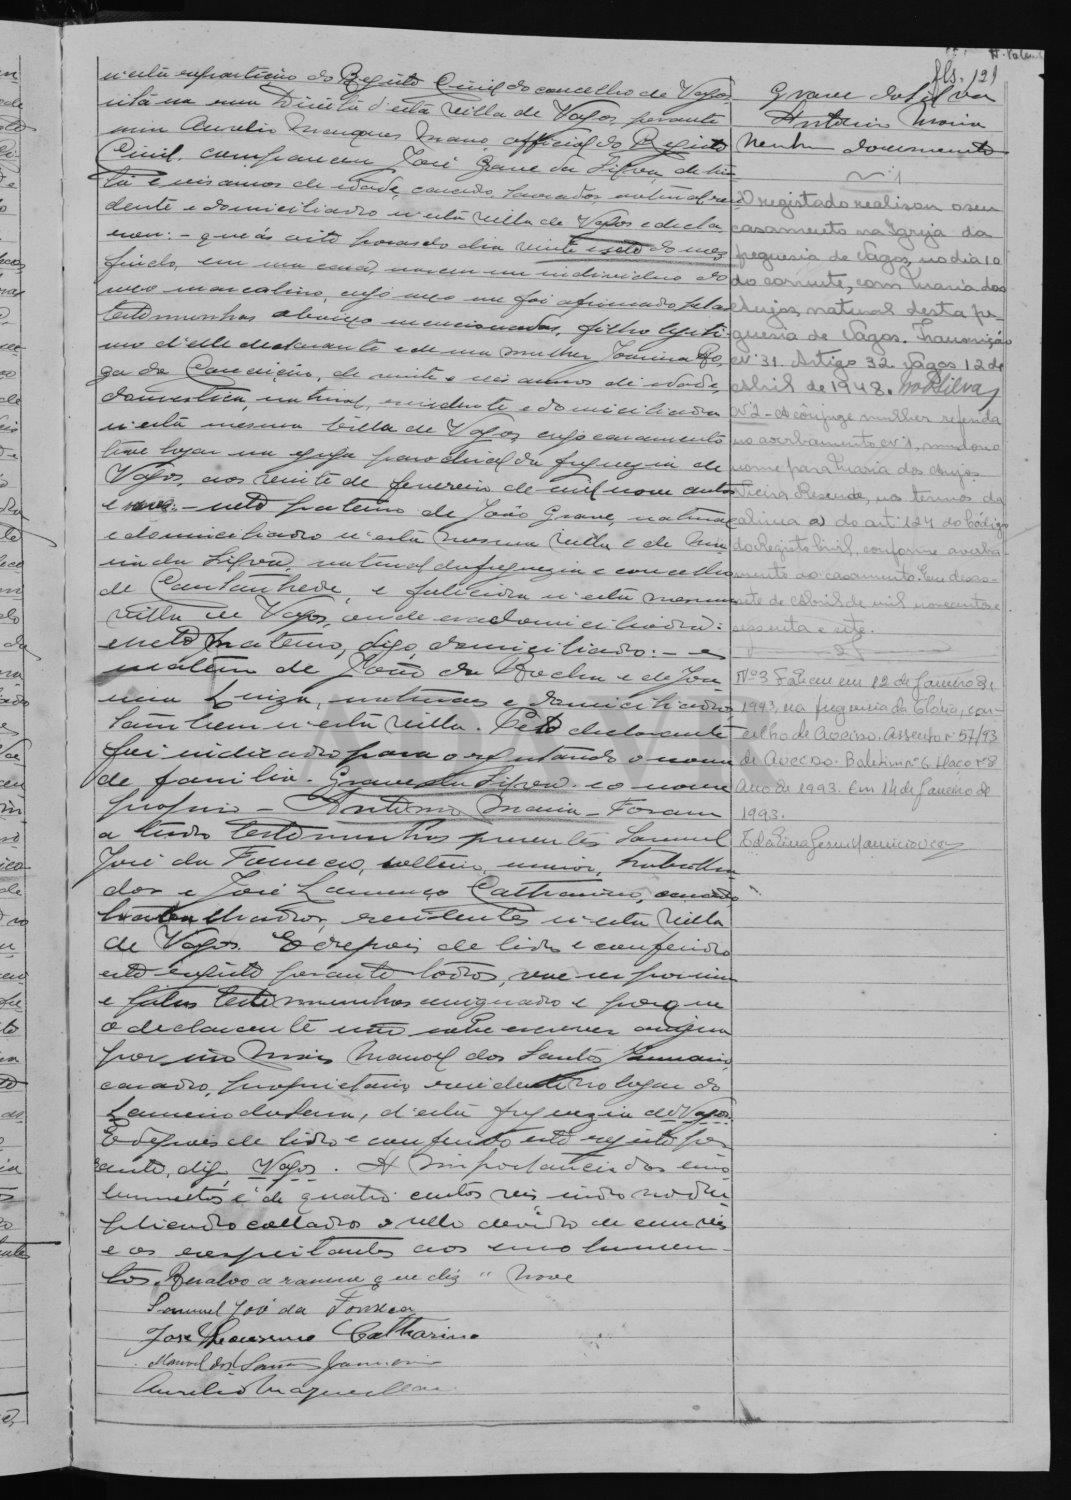 n'esta repartição do Registo Civil do concelho de Vagos
sita na rua Direita d'esta villa de Vagos perante
mim Aurelio Marques Mano, official do Registo
Civil, compareceu José Grave da Silva, de trin-
ta e seis annos de edade, casado, lavrador, natural, resi-
dente e domiciliado n'esta villa de Vagos e decla
rou: - que ás oito horas do dia vinte e sete do mez
findo, em sua casa, nasceu um individuo do
sexo masculino, cujo sexo me foi afirmado pelas
testemunhas abaixo mencionadas, filho legiti-
mo d'elle declarante e de sua mulher Joanna Ro
za da Conceição, de vinte e seis annos de edade,
domestica, natural, residente e domiciliada
n'esta mesma Villa de Vagos cujo casamento
teve logar na egreja parochial da freguezia de
Vagos, aos vinte de fevereiro de mil nove centos
e nove: - neto paterno de João Grave, natural
e domiciliado n'esta mesma villa e de Ma
ria da Silva, natural da freguezia e concelho
de Cantanhede, e falecida n'esta mesma
villa de Vagos, onde era domiciliada:
e neto materno, digo, domiciliado: - e
materno de João da Rocha e de Joa
na Luiza, naturaes e domiciliados
tambem n'esta villa. Pelo declarante
foi indicado para o registando o nome
de familia - Grave da Silva - e o nome
proprio - Antonio Maria - Foram
a tudo testemunhas presentes Samuel
José da Fonseca, solteiro, maior, trabalha
dor e José Lourenço Catharino, casado
trabalhador, residentes n'esta villa
de Vagos. E depois de lido e conferido
este registo perante todos, vae ser por mim
e pelas testemunhas assignado e porque
o declarante não sabe escrever assigna
por elle Manoel dos Santos Januario,
casado, proprietario, residente no logar do
Lameiro da Serra, d'esta freguezia de Vagos.
E depois de lido e conferido este registo per
ante, digo, Vagos. A importancia dos emo
lumentos é de quatro centos reis indo no du
plicado collado o sello devido de cem reis
e os respeitantes aos emolumen-
tos. Resalvo a rasura que diz " nove
Samuel José da Fonseca
José Lourenço Catharino
Manoel dos Santos Januario
Aurelio Marques Mano
fls. 121
Grave da Silva
Antonio Maria
Nenhum documento
Nº 1
O registado realisou o seu
casamento na Igreja da
freguesia de Vagos, no dia 10
do corrente, com Maria dos
Anjos, natural desta fre-
guesia de Vagos. Transcrição
nº 31. Artigo 32. Vagos 12 de
Abril de 1948.
Nº 2 - A cônjuge mulher referida
no averbamento nº 1, mudou o
nome para Maria dos Anjos
Vieira Resende, nos termos da
alinea a) do artº 124 do Código
do Registo Civil, conforme averba-
mento ao casamento. Em dezas-
sete de Abril de mil novecentos e
sessenta e sete.
Nº 3 Faleceu em 12 de Janeiro de
1993, na freguesia da Glória, con-
celho de Aveiro. Assento nº 57/93
de Aveiro. Boletim nº 6 Maço nº 8
Ano de 1993. Em 14 de Janeiro de
1993.